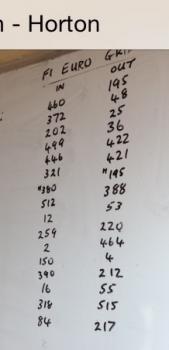 - Horton
F1 EURO
IN
OUT
460 195
372 48
202 25
499 36
446 422
321 421
"380 "195
512 388
12 53
259 220
2 464
150 4
390 212
16 55
318 515
84 217